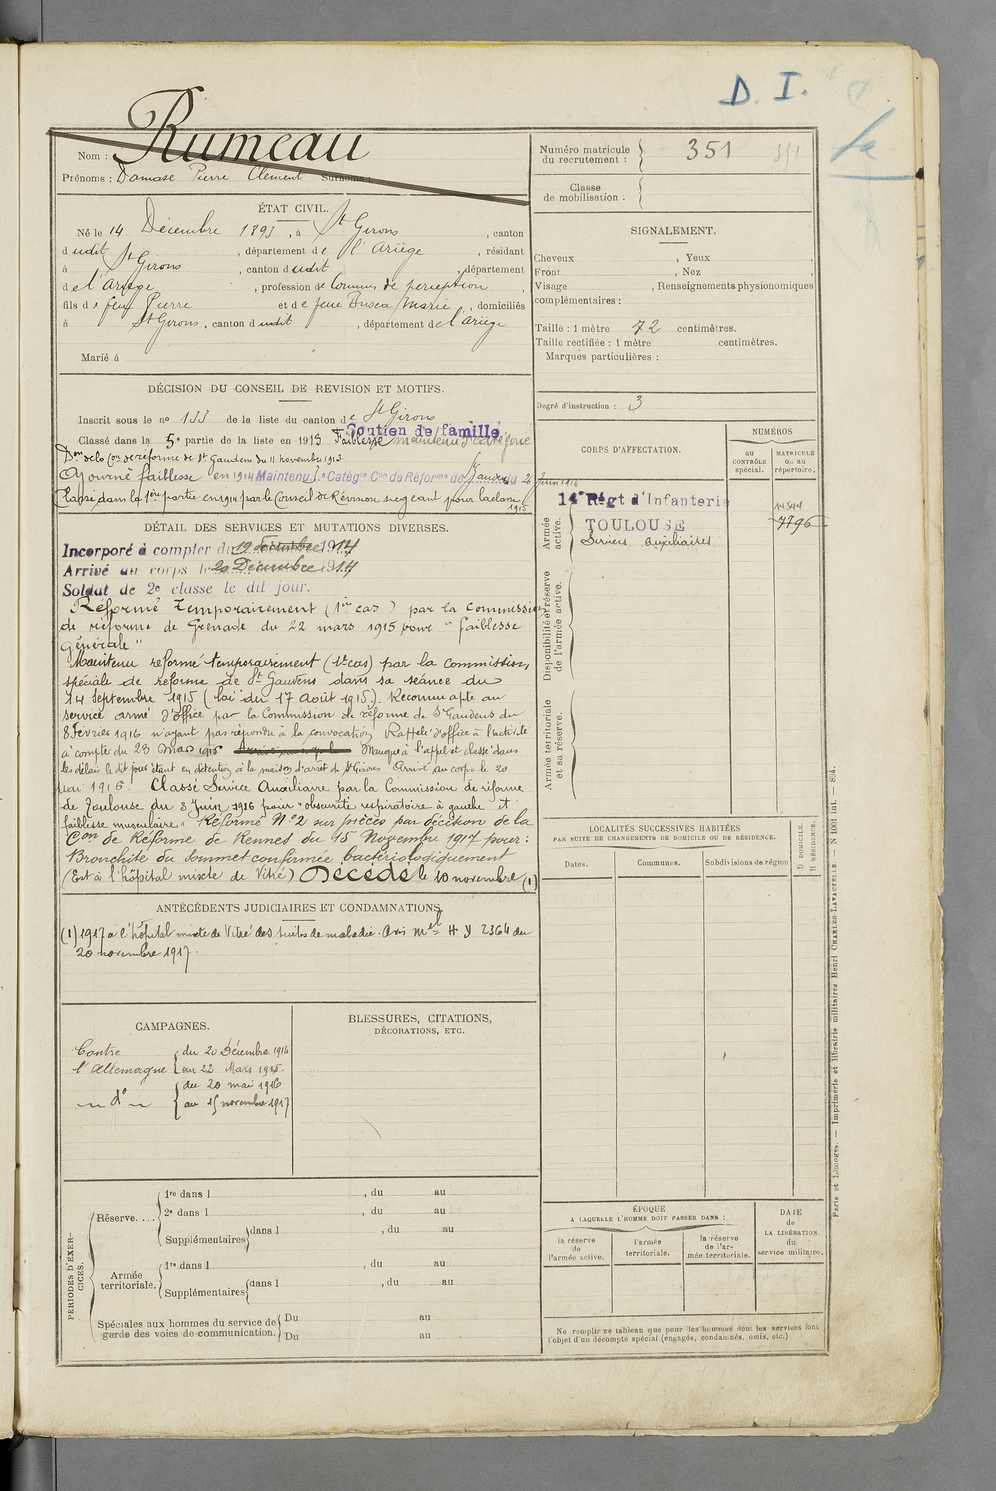 D. I.
Nom : Rumeau
Prénoms : Damase Pierre Clément Surnoms :
Numéro matricule du recrutement : 351
Classe de mobilisation :
ÉTAT CIVIL.
Né le 14 Décembre 1893, à St Girons, canton
dudit St Girons, département de l'Ariège, résidant
à St Girons, canton dudit, département
de l'Ariège, profession de Commis de perception,
fils de feu Pierre et de feue Dusca Marie, domiciliés
à St Girons, canton dudit, département de l'Ariège
Marié à
SIGNALEMENT.
Cheveux , Yeux ,
Front , Nez ,
Visage , Renseignements physionomiques
complémentaires :
Taille : 1 mètre 72 centimètres.
Taille rectifiée : 1 mètre centimètres.
Marques particulières :
Degré d'instruction : 3
DÉCISION DU CONSEIL DE REVISION ET MOTIFS.
Inscrit sous le no 133 de la liste du canton de St Girons
Soutien de famille
Classé dans la 5e partie de la liste en 1913 Faiblesse maintenu catégorie
Don de la Con de réforme de St Gaudens du 11 novembre 1913
Ajourné faiblesse en 1914 Maintenu 1re Catégie Con de Réforme de St Gaudens du 2 Juin 1914
Classé dans la 1ère partie en 1914 par le Conseil de Révision siégeant pour la classe 1915
DÉTAIL DES SERVICES ET MUTATIONS DIVERSES.
Incorporé à compter du 19 Décembre 1914
Arrivé au corps le 20 Décembre 1914
Soldat de 2e classe le dit jour.
Réformé temporairement (1er cas) par la commission
de réforme de Grenade du 22 mars 1915 pour "faiblesse
générale"
Maintenu reformé temporairement (1er cas) par la commission
spéciale de reforme de St Gaudens dans sa séance du
14 Septembre 1915 (loi du 17 Août 1915). Reconnu apte au
service armé d'office par la Commission de réforme de St Gaudens du
8 Février 1916 n'ayant pas répondu à la convocation Rappelé d'office à l'activité
à compter du 23 mars 1916 Manque à l'appel et classé dans
les délais le dit jour étant en détention à la maison d'arrêt de St Girons Arrivé au corps le 20
mai 1916. Classé Service Auxiliaire par la Commission de réforme
de Toulouse du 8 Juin 1916 pour "obscurité respiratoire à gauche et
faiblesse musculaire". Réformé No 2 sur pièces par décision de la
Con de Réforme de Rennes du 15 Novembre 1917 pour :
Bronchite du Sommet confirmée bactériologiquement
(Est à l'hôpital mixte de Vitré) Décédé le 10 novembre (1)
ANTÉCÉDENTS JUDICIAIRES ET CONDAMNATIONS.
(1) 1917 à l'hôpital mixte de Vitré des suites de maladie. Avis mel H Y 2364 du
20 novembre 1917.
CAMPAGNES.
Contre l'Allemagne du 20 Décembre 1914
au 22 Mars 1915
do du 20 mai 1916
au 15 novembre 1917
BLESSURES, CITATIONS,
DÉCORATIONS, ETC.
PÉRIODES D'EXERCICES.
Réserve.... 1re dans l , du au
2e dans l , du au
Supplémentaires dans l , du au
Armée territoriale. 1re dans l , du au
Supplémentaires dans l , du au
Spéciales aux hommes du service de Du au
garde des voies de communication. Du au
CORPS D'AFFECTATION.
NUMÉROS
au CONTRÔLE spécial.
MATRICULE ou au répertoire.
Armée active.
14e Régt d'Infanterie
TOULOUSE
Services auxiliaires
7796
Disponibilité et réserve de l'armée active.
Armée territoriale et sa réserve.
LOCALITÉS SUCCESSIVES HABITÉES
PAR SUITE DE CHANGEMENTS DE DOMICILE OU DE RÉSIDENCE.
Dates. Communes. Subdivisions de région
D DOMICILE.
R RÉSIDENCE.
ÉPOQUE
A LAQUELLE L'HOMME DOIT PASSER DANS :
la réserve de l'armée active.
l'armée territoriale.
la réserve de l'armée territoriale.
DATE de LA LIBÉRATION du service militaire.
Ne remplir ce tableau que pour les hommes dont les services font
l'objet d'un décompte spécial (engagés, condamnés, omis, etc.)
Paris et Limoges. — Imprimerie et librairie militaires Henri CHARLES-LAVAUZELLE. — N 1001 Int. — 894.